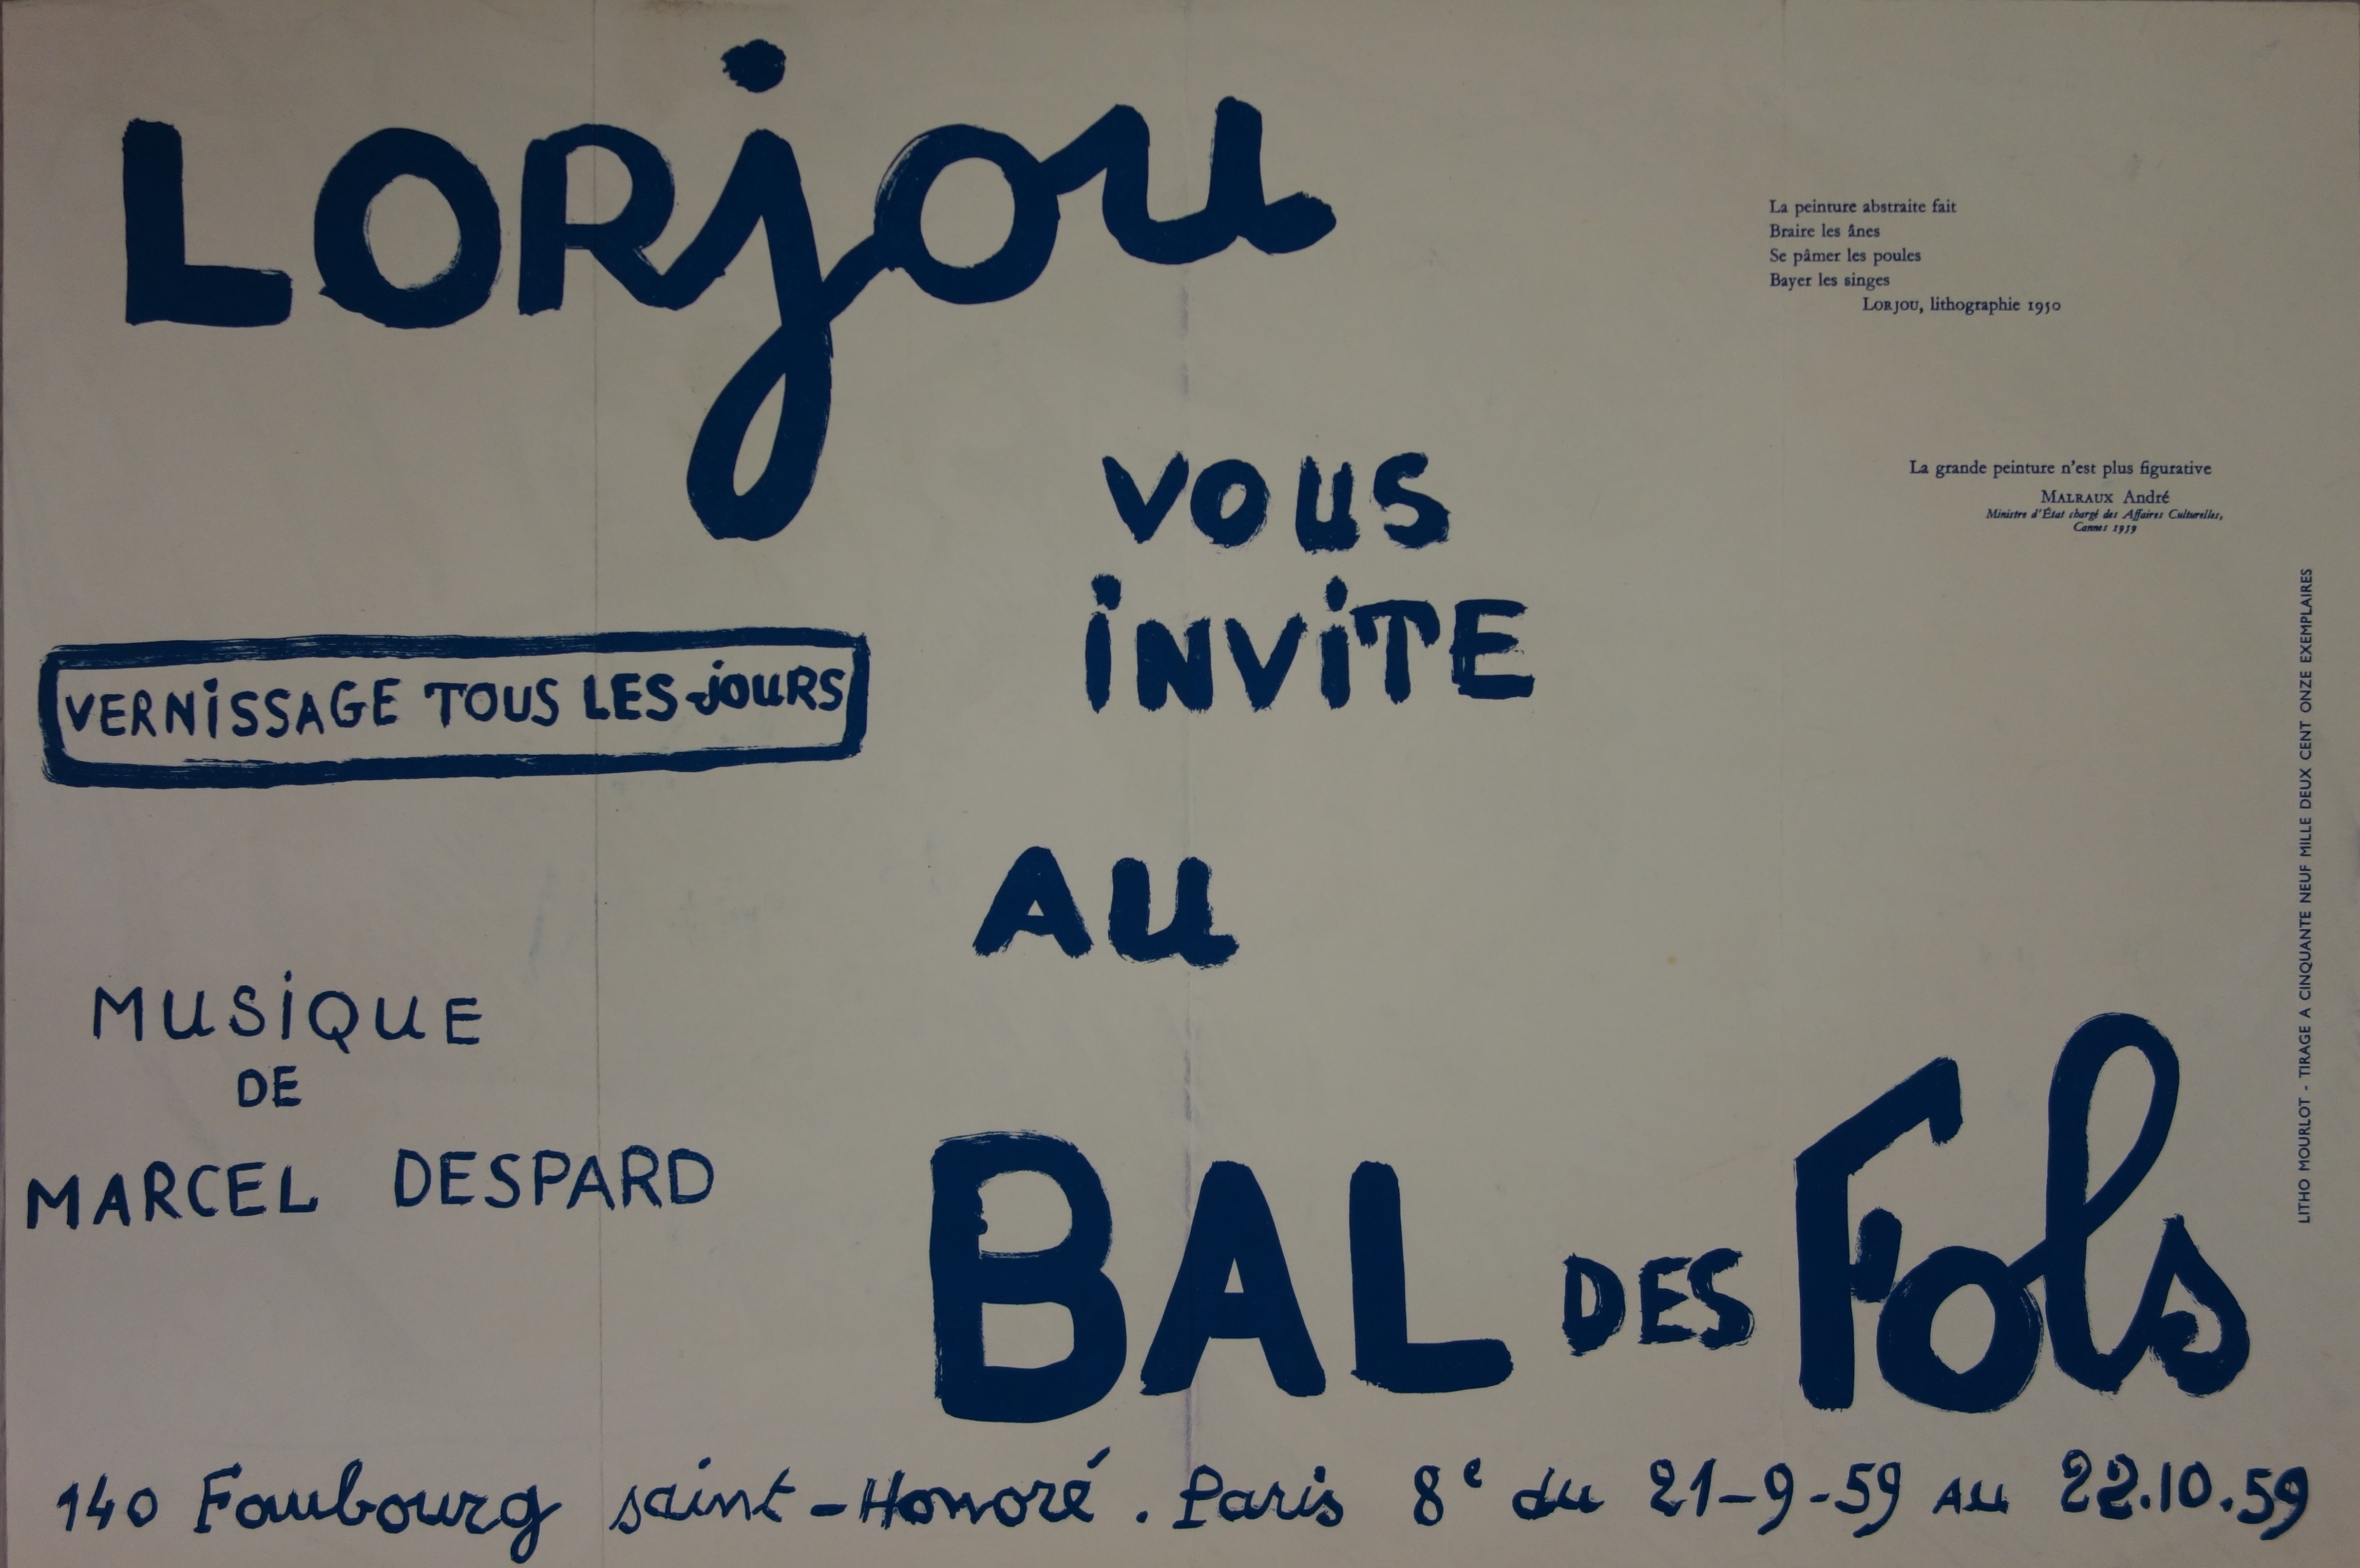 LORjou
La peinture abstraite fait
Braire les ânes
Se pâmer les poules
Bayer les singes
LORJOU, lithographie 1950
La grande peinture n'est plus figurative
MALRAUX André
Ministre d'État chargé des Affaires Culturelles,
Cannes 1959
VOUS
iNViTE
VERNiSSAGE TOUS LES jOURS
AU
MUSiQUE
DE
MARCEL DESPARD
BAL DES Fols
140 Faubourg saint-Honoré . Paris 8e du 21-9-59 AU 22.10.59
LITHO MOURLOT - TIRAGE A CINQUANTE NEUF MILLE DEUX CENT ONZE EXEMPLAIRES